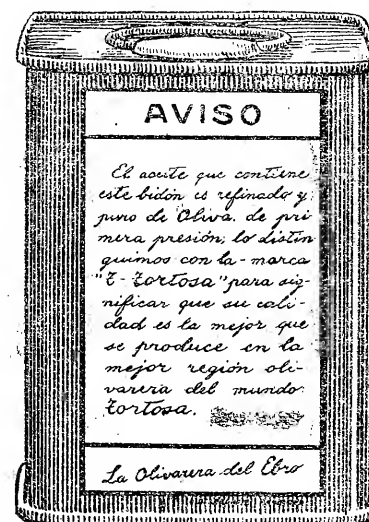 AVISO
El aceite que contiene
este bidón es refinado y
puro de Oliva, de pri
mera presión; lo distin
guimos con la - marca
"T - Tortosa" para sig-
nificar que su cali-
dad es la mejor que
se produce en la
mejor región oli-
varera del mundo:
Tortosa.
La Olivarera del Ebro